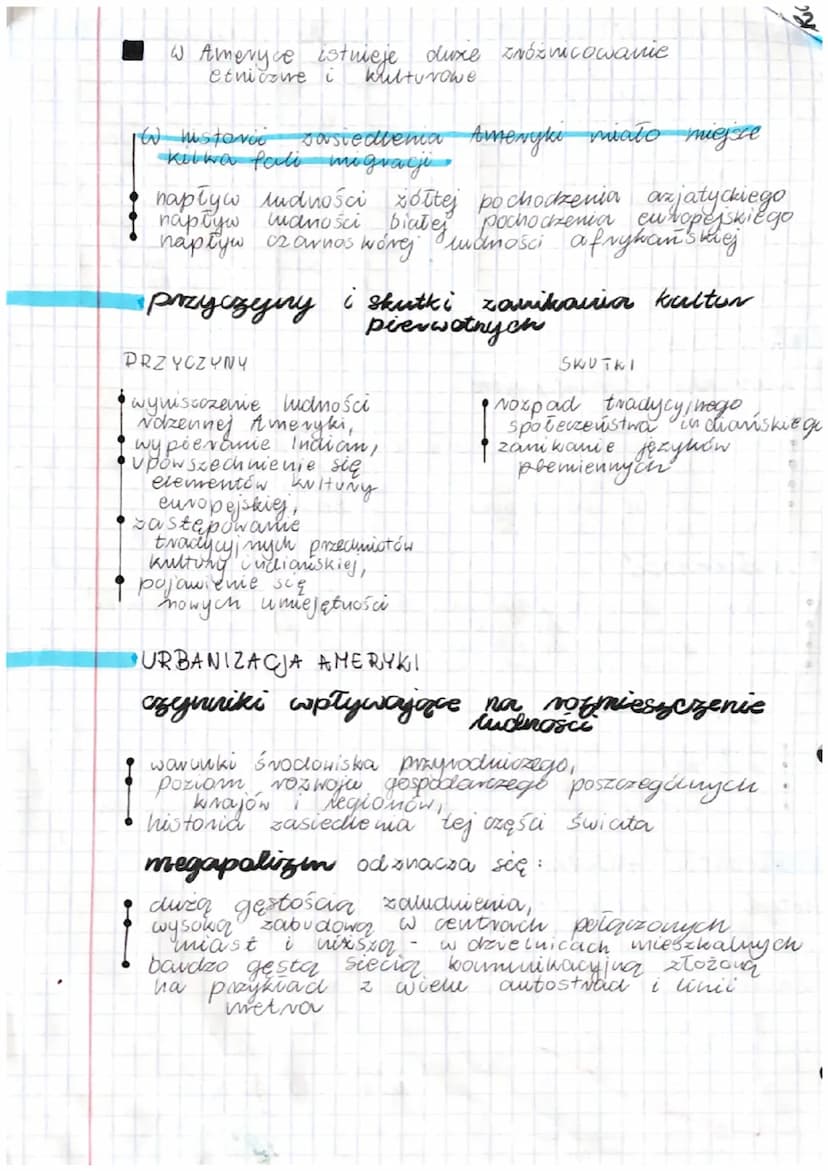 22
W Ameryce istnieje duże zróżnicowanie
etniczne i kulturowe
W historii zasiedlenia Ameryki miało miejsce
kilka fali migracji
napływ ludności żółtej pochodzenia azjatyckiego
napływ ludności białej pochodzenia europejskiego
napływ czarnoskórej ludności afrykańskiej
przyczyny i skutki zanikania kultur
pierwotnych
PRZYCZYNY
wyniszczenie ludności
rdzennej Ameryki,
wypieranie Indian,
upowszechnienie się
elementów kultury
europejskiej,
zastępowanie
tradycyjnych przedmiotów
kultury indiańskiej,
pojawienie się
nowych umiejętności
SKUTKI
rozpad tradycyjnego
społeczeństwa indiańskiego
zanikanie języków
plemiennych
URBANIZACJA AMERYKI
czynniki wpływające na rozmieszczenie
ludności
warunki środowiska przyrodniczego,
poziom rozwoju gospodarczego poszczególnych
krajów i regionów,
historia zasiedlenia tej części świata
megapolizm odznacza się:
dużą gęstością zaludnienia,
wysoką zabudową w centrach połączonych
miast i niższą - w dzielnicach mieszkalnych
bardzo gęstą siecią komunikacyjną złożoną
na przykład z wielu autostrad i linii
metra